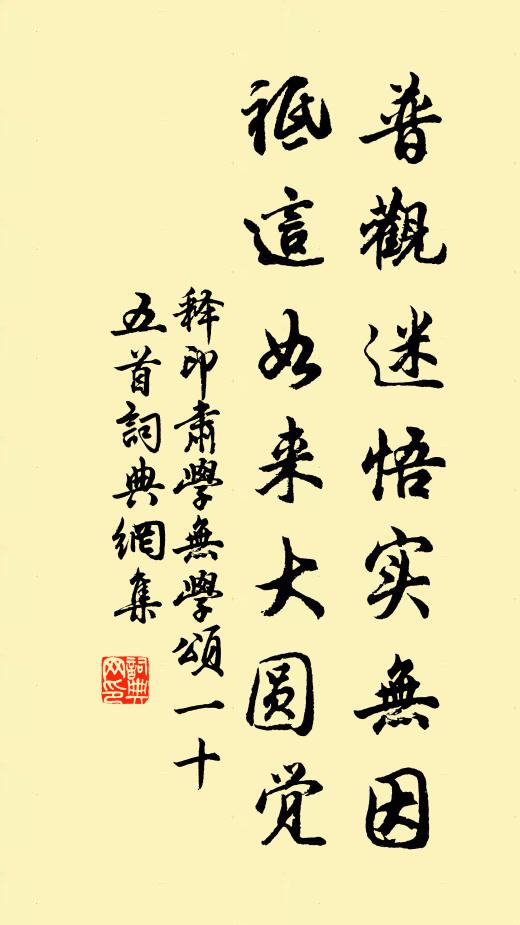 普觀迷悟实無因
祗這如来大圆觉
释印肃學無學頌一十
五首詞典網集
詞典网印